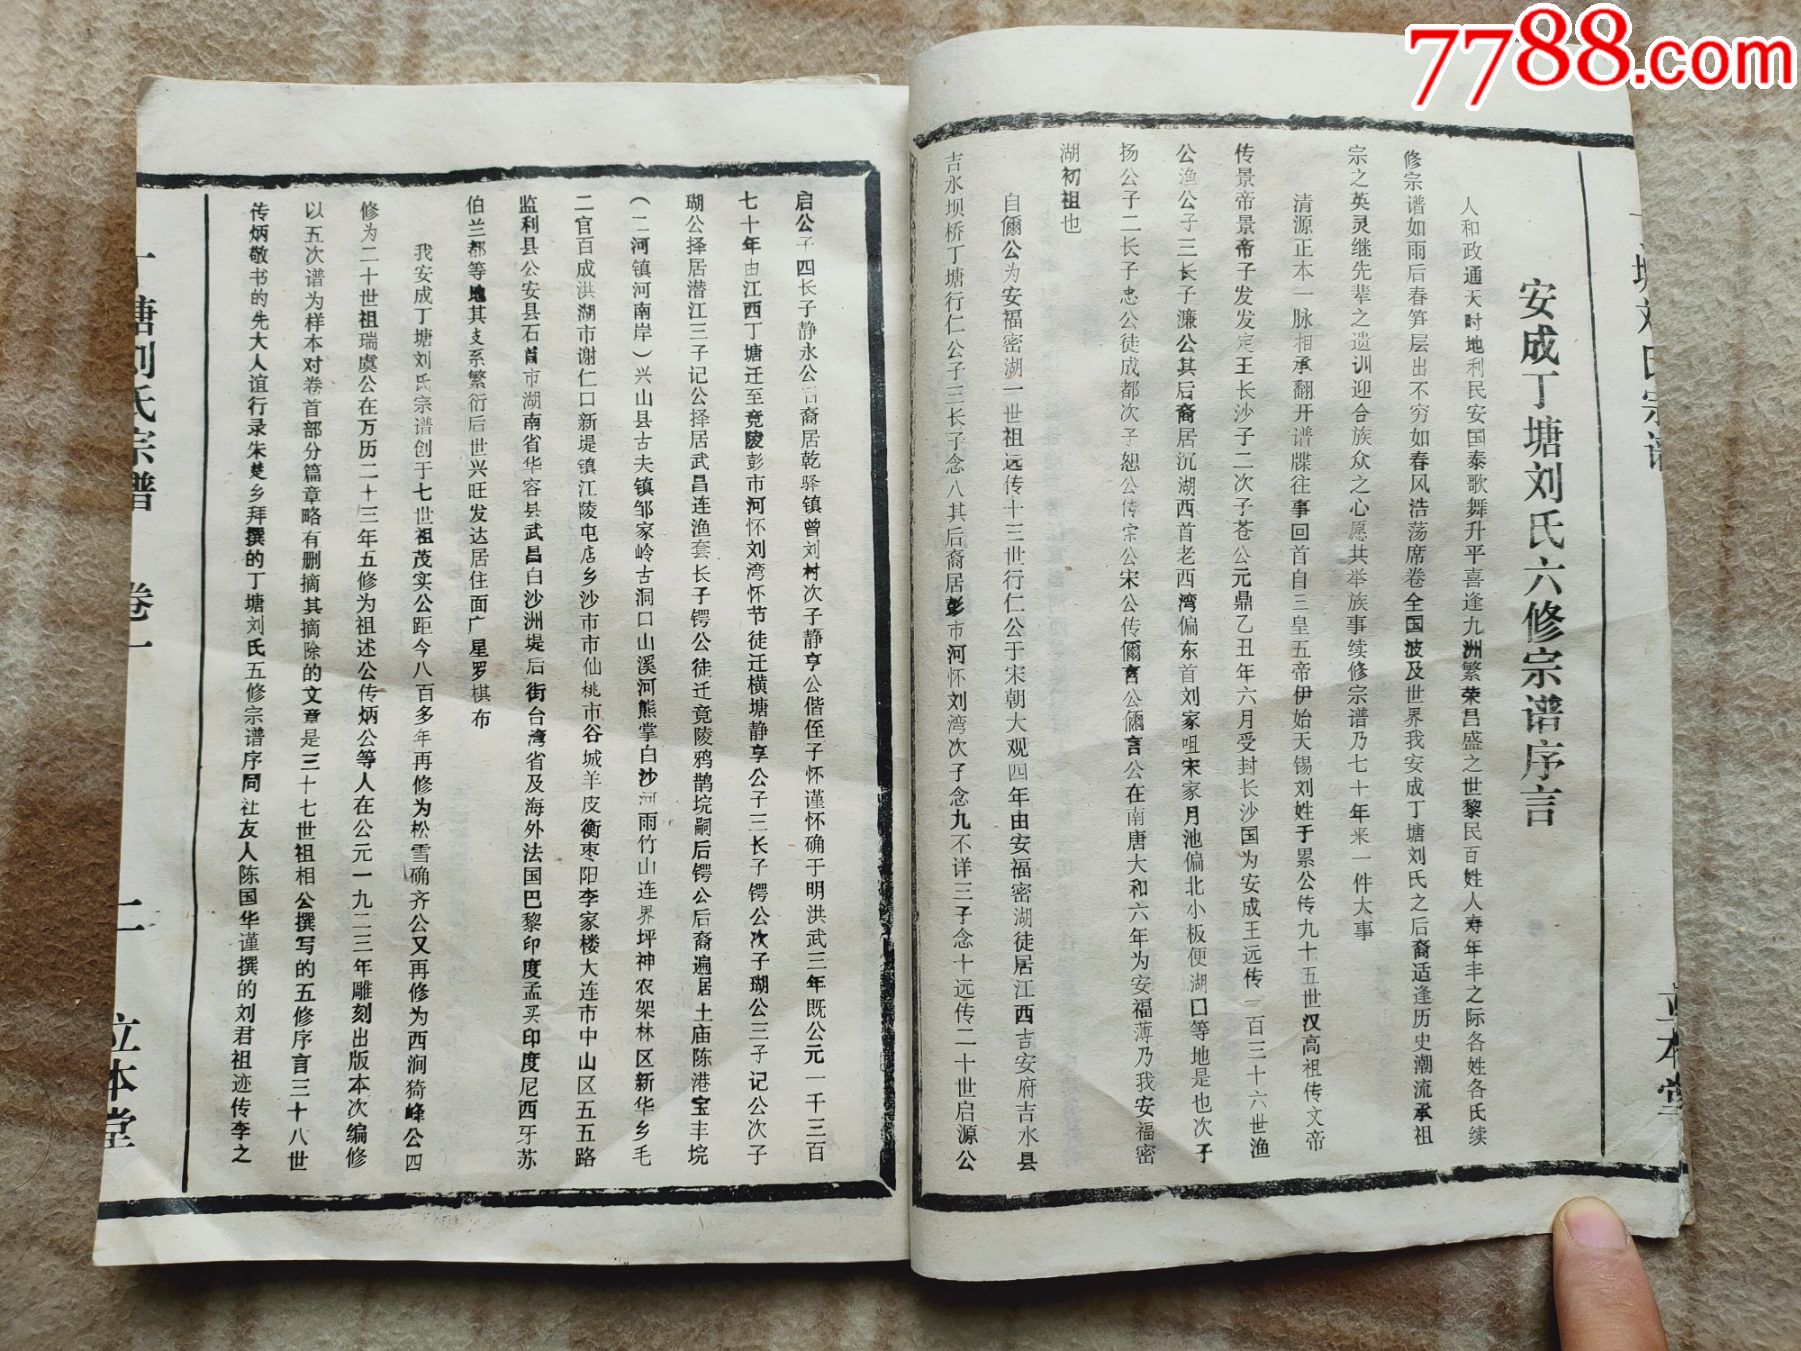 7788.com
安成丁塘刘氏六修宗谱序言
人和政通天时地利民安国泰歌舞升平喜逢九洲繁荣昌盛之世黎民百姓人寿年丰之际各姓各氏续
修宗谱如雨后春笋层出不穷如春风浩荡席卷全国波及世界我安成丁塘刘氏之后裔适逢历史潮流承祖
宗之英灵继先辈之遗训迎合族众之心愿共举族事续修宗谱乃七十年来一件大事
清源正本一脉相承翻开谱牒往事回首自三皇五帝伊始天锡刘姓于累公传九十五世汉高祖传文帝
传景帝景帝子发发定王长沙子二次子苍公元鼎乙丑年六月受封长沙国为安成王远传一百三十六世渔
公渔公子三长子濂公其后裔居沉湖西首老西湾偏东首刘家咀宋家月池偏北小板便湖口等地是也次子
扬公子二长子忠公徒成都次子恕公传宗公宋公传儞言公儞言公在南唐大和六年为安福薄乃我安福密
湖初祖也
自儞公为安福密湖一世祖远传十三世行仁公于宋朝大观四年由安福密湖徒居江西吉安府吉水县
吉水坝桥丁塘行仁公子三长子念八其后裔居彭市河怀刘湾次子念九不详三子念十远传二十世启源公
启公子四长子静永公后裔居乾驿镇曾刘村次子静亨公偕侄子怀谨怀确于明洪武三年既公元一千三百
七十年由江西丁塘迁至竞陵彭市河怀刘湾怀节徒迁横塘静享公子三长子锷公次子瑚公三子记公次子
瑚公择居潜江三子记公择居武昌连渔套长子锷公徒迁竟陵鸦鹊垸嗣后锷公后裔遍居土庙陈港宝丰垸
（二河镇河南岸）兴山县古夫镇邹家岭古洞口山溪河熊掌白沙河雨竹山连界坪神农架林区新华乡毛
二官百成洪湖市谢仁口新堤镇江陵屯店乡沙市市仙桃市谷城羊皮衡枣阳李家楼大连市中山区五五路
监利县公安县石首市湖南省华容县武昌白沙洲堤后街台湾省及海外法国巴黎印度孟买印度尼西牙苏
伯兰都等地其支系繁衍后世兴旺发达居住面广星罗棋布
我安成丁塘刘氏宗谱创于七世祖茂实公距今八百多年再修为松雪确齐公又再修为西涧猗峰公四
修为二十世祖瑞虞公在万历二十三年五修为祖述公传炳公等人在公元一九二三年雕刻出版本次编修
以五次谱为样本对卷首部分篇章略有删摘其摘除的文章是三十七世祖相公撰写的五修序言三十八世
传炳敬书的先大人谊行录朱楚乡拜撰的丁塘刘氏五修宗谱序同社友人陈国华谨撰的刘君祖迹传李之
丁塘刘氏宗谱 卷一 二 立本堂